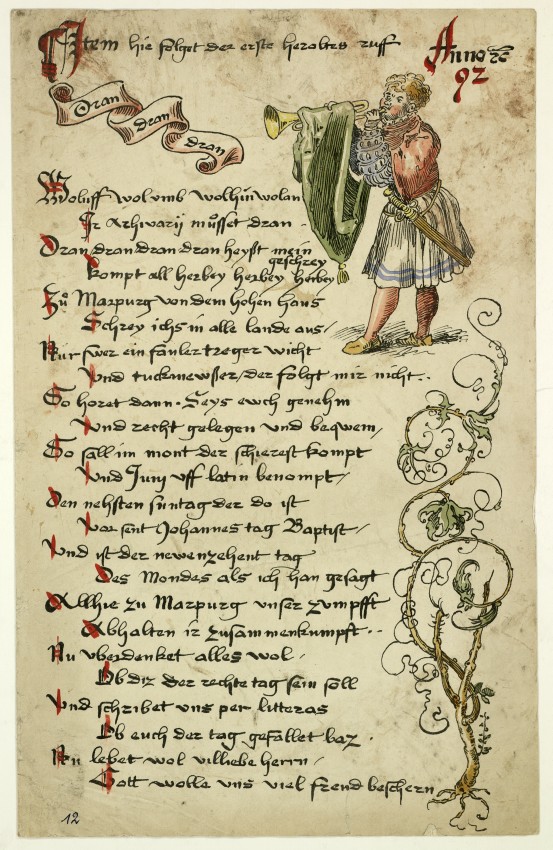 Item hie folget der erste heroltes ruff
Anno ꝛc
92
Dran
dran
dran
Woluff wol umb wolhin wolan
Ir Arhivarij müsset dran .
Dran dran dran dran heyst mein geschrey
Kompt all herbey herbey herbey
Zů Marpurg von dem hohen haus
Schrey ichs in alle lande aus /
Nur swer ein fauler treger wicht
Vnd tuckmewsser / der folgt mir nicht . .
So horet dann . Seys ewch genehm
Vnd recht gelegen und beqwem /
So sall im mont der schierest kompt
Vnd Junj uff latin benompt /
Den nehsten suntag der do ist
Vor sent Johannes tag Baptist /
Vnd ist der newenzehent tag
Des Mondes als ich han gesagt
Allhie zu Marpurg unser zumpfft
Abhalten ir zusammenkumpft . .
Nu vberdenket alles wol .
Ob diz der rechte tag sein soll
Vnd schribet uns per litteras
Ob euch der tag gefallet baz .
Nu lebet wol villiebe herrn /
Gott wolle uns viel freud beschern
12